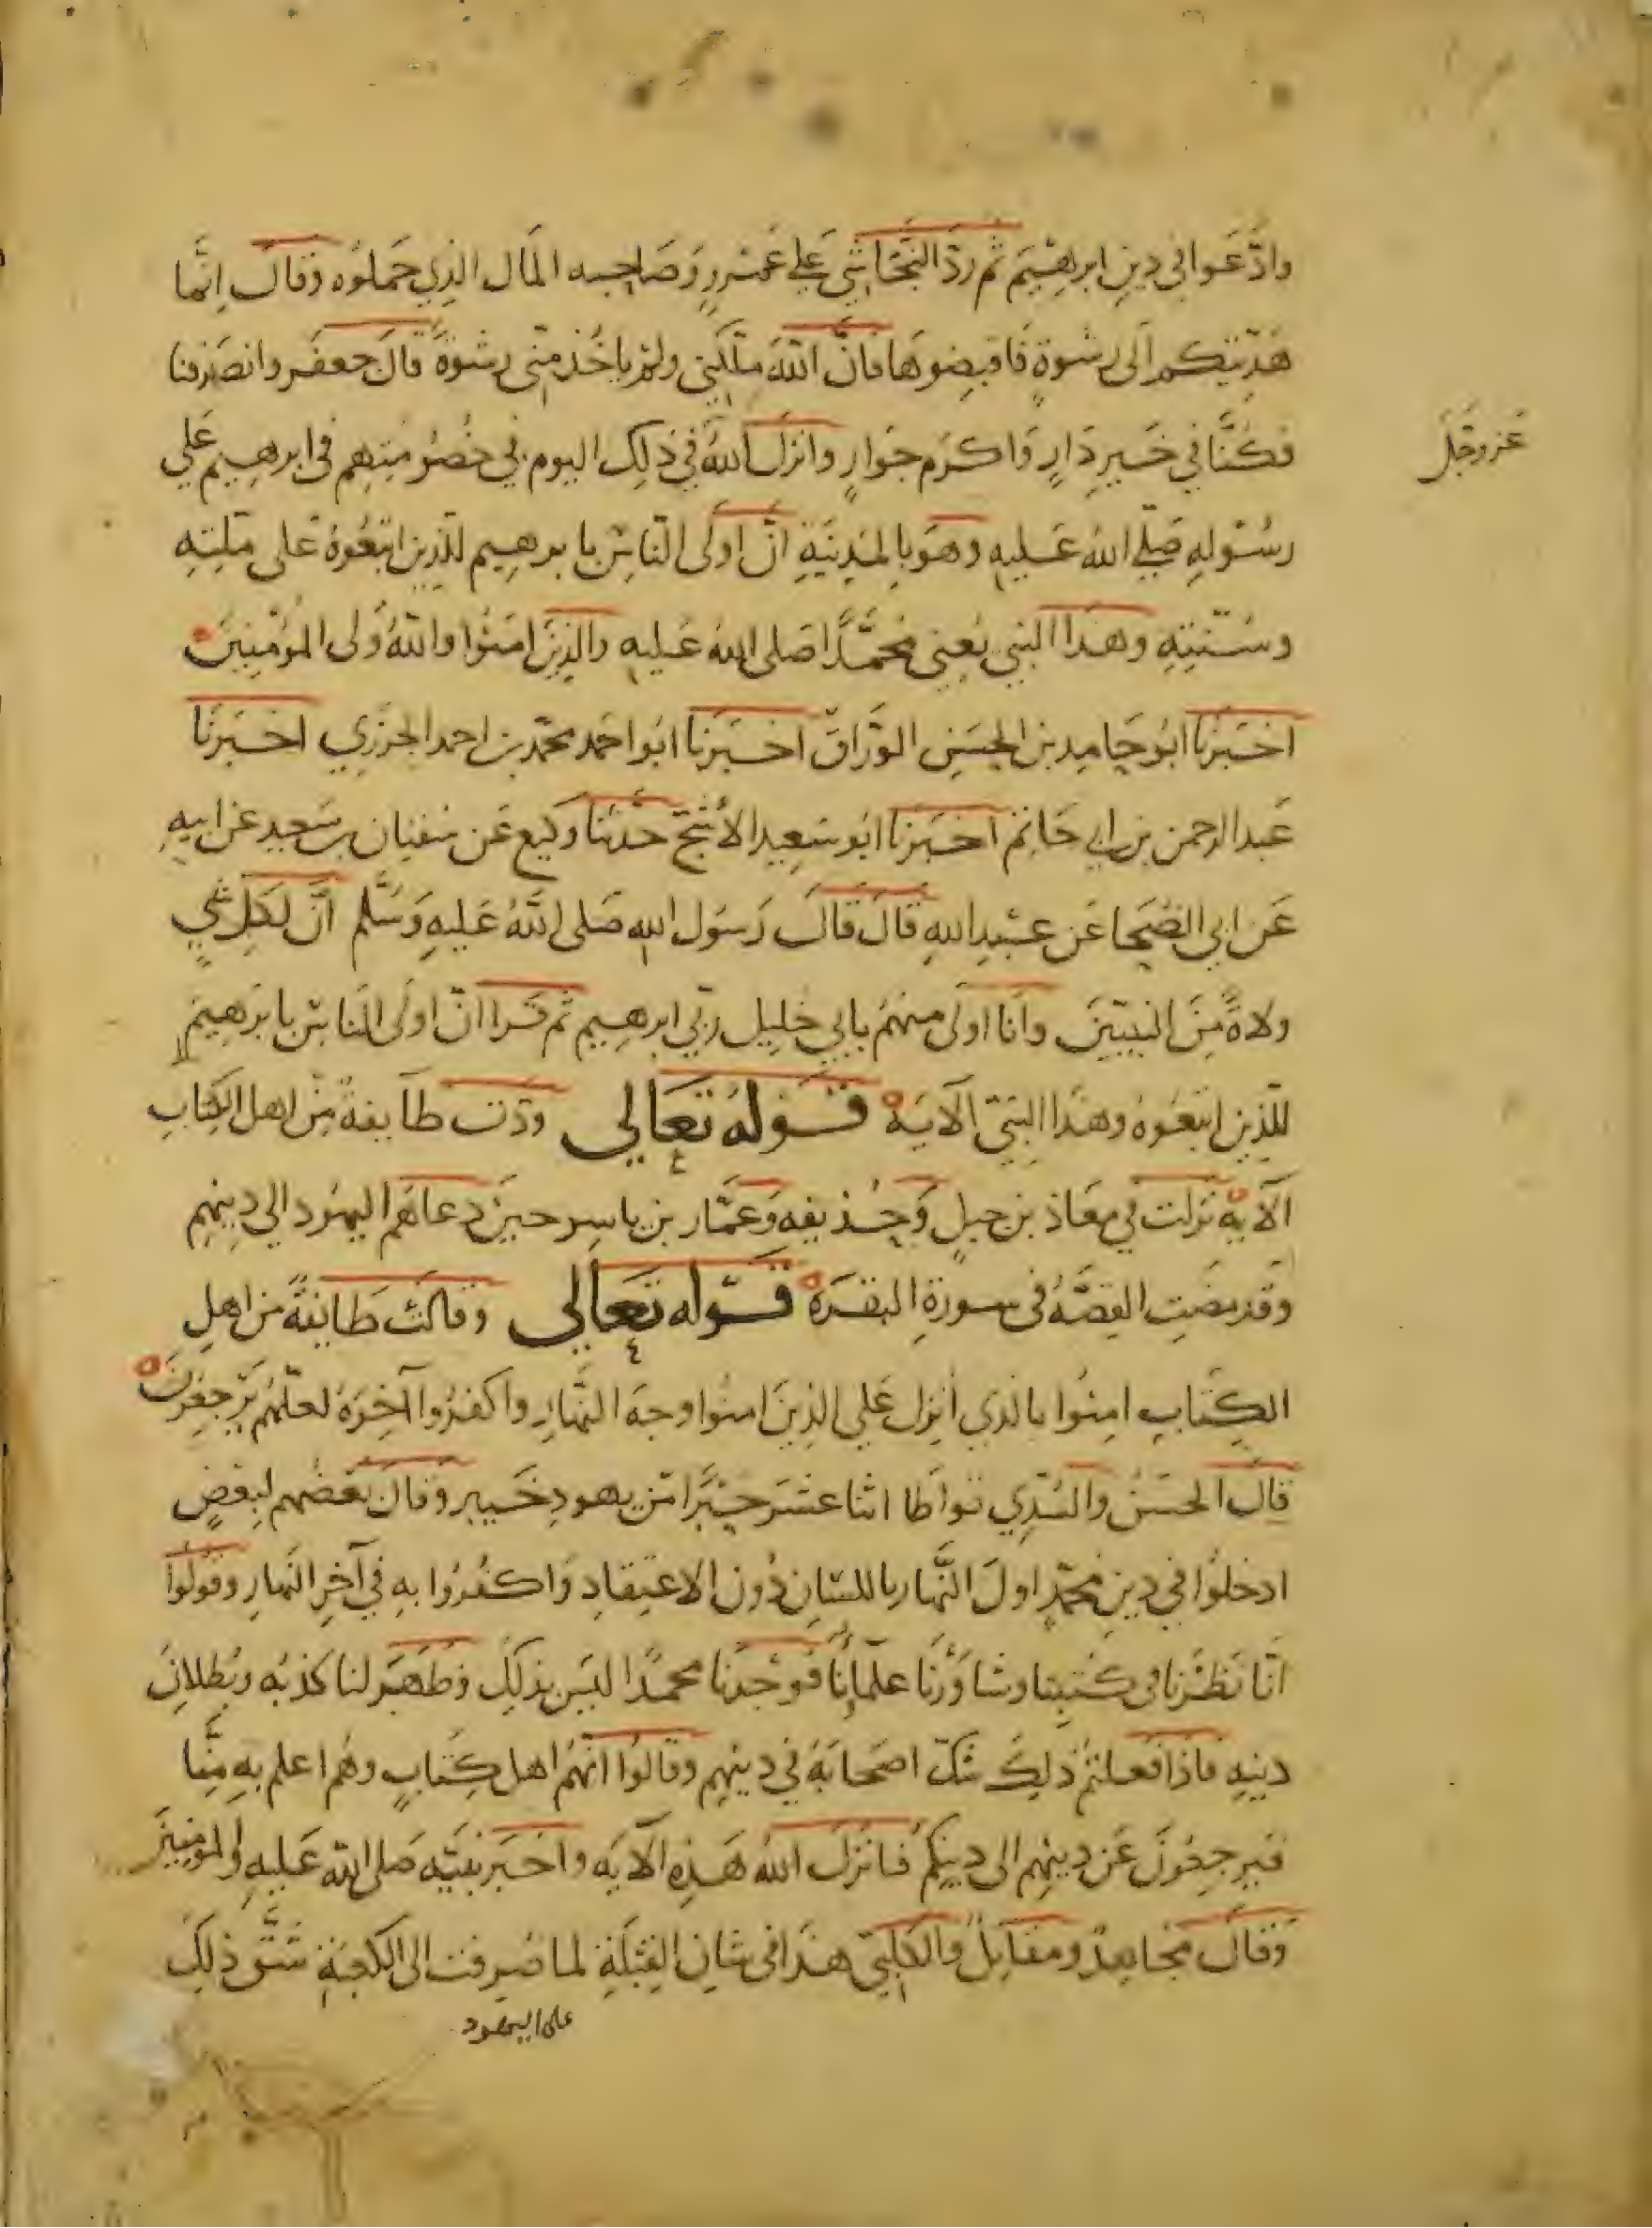 وادّعوا في دين ابرهيم ثم ردّ النجاشي علي عمرو وصاحبه المال الذي حملوه وقال انّما
هديتكم الى رشوة فاقبضوها فانّ الله ملّكني ولم ياخذ منّى رشوة قال جعفر وانصرفنا
فكنّا في خير دار واكرم جوار وانزل الله في ذلك اليوم في خصومتهم في ابرهيم علي
عز وجل
رسوله صلّي الله عليه وهو بالمدينة انّ اولى الناس بابرهيم للذين اتبعوه على ملّته
وسنته وهذا النبي يعني محمّدا صلى الله عليه والذين امنوا والله ولى المؤمنين
اخبرنا ابو حامد بن الحسن الورّاق اخبرنا ابو احمد محمّد بن احمد الجزري اخبرنا
عبد الرحمن بن ابي حاتم اخبرنا ابو سعيد الاشجّ حدثنا وكيع عن سفيان بن سعيد عن ابيه
عن ابي الضحا عن عبد الله قال قال رسول الله صلى الله عليه وسلّم انّ لكل شي
ولاة من النبيّين وانا اولى منهم بابي خليل ربّي ابرهيم ثم قرا انّ اولى الناس بابرهيم
للّذين اتبعوه وهذا النبيّ الآية قوله تعالي ودّت طآيفة من اهل الكتاب
الآية نزلت في معاذ بن جبل وحذيفه وعمّار بن ياسر حين دعاهم اليهود الي دينهم
وقد مضت القصّة في سورة البقرة قوله تعالي وقالت طايفة من اهل
الكتاب امنوا بالذي انزل علي الذين امنوا وجه النّهار واكفروا آخره لعلّهم يرجعون
قال الحسن والسّدّي تواطا اثنا عشر حبرا من يهود خيبر وقال بعضهم لبعض
ادخلوا في دين محمّد اول النّهار باللسان دون الاعتقاد واكفروا به في آخر النّهار وقولوا
انّا نظرنا في كتبنا وشاورنا علمآينا فوجدنا محمدا ليس بذلك وظهر لنا كذبه وبطلان
دينه فاذا فعلتم ذلك شكّ اصحابه في دينهم وقالوا انّهم اهل كتاب وهم اعلم به منّا
فيرجعون عن دينهم الى دينكم فانزل الله هذه الآية واخبر نبيّه صلى الله عليه والمومنين
وقال مجاهد ومقاتل والكلبيّ هذا في شان القبلة لما صرفت الى الكعبة شقّ ذلك
على اليهود